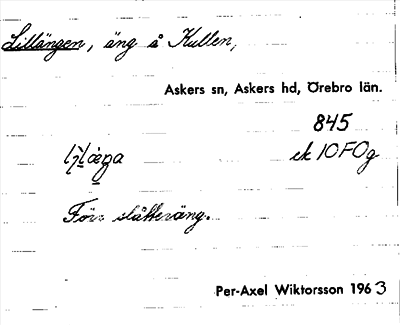 Lillängen, äng å Kullen,
Askers sn, Askers hd, Örebro län.
845
ek 10F0g
Förr slåtteräng.
Per-Axel Wiktorsson 1963